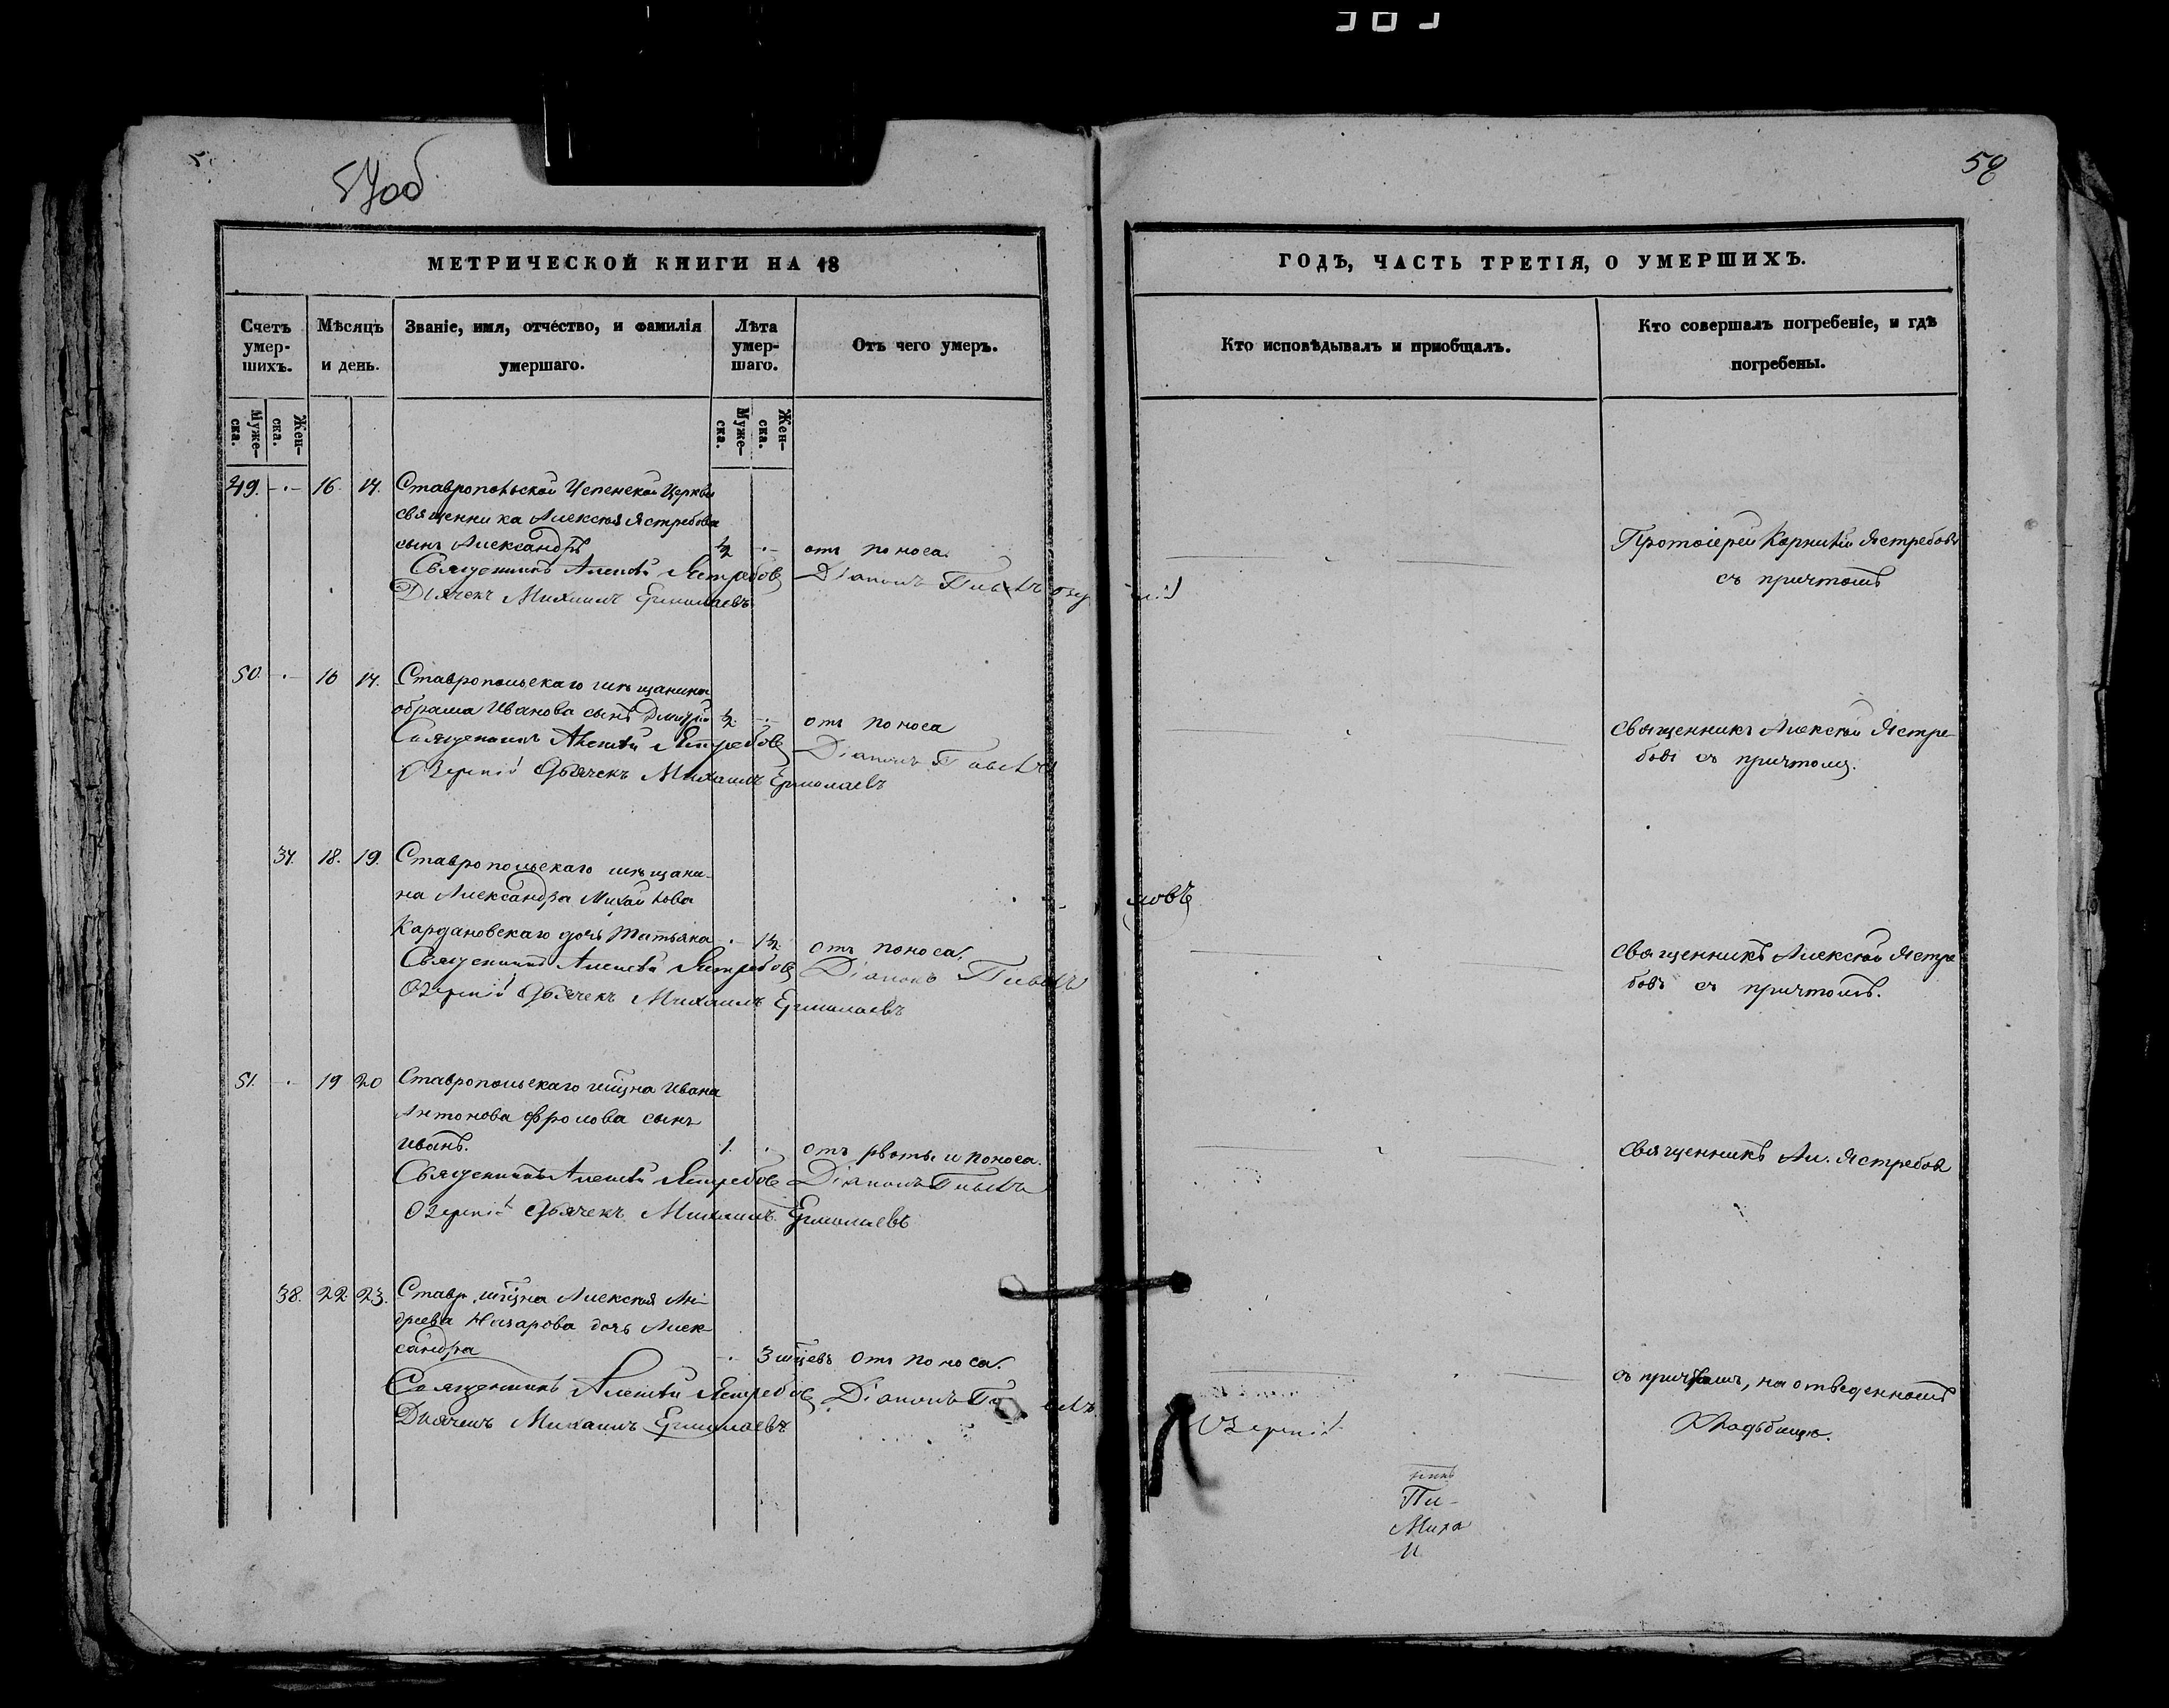 57об
58
МЕТРИЧЕСКОЙ КНИГИ НА 18
ГОДЪ, ЧАСТЬ ТРЕТІЯ, О УМЕРШИХЪ.
Счетъ умер-шихъ.
Мѣсяцъ и день.
Званіе, имя, отчество, и фамилія умершаго.
Лѣта умер-шаго.
Отъ чего умеръ.
Кто исповѣдывалъ и приобщалъ.
Кто совершалъ погребеніе, и гдѣ погребены.
Муже-ска.
Жен-ска.
Муже-ска.
Жен-ска.
49. 16 17. Ставропольской Успенской Церкви
священника Алексѣя Ястребова
сынъ Александръ ½ отъ поноса.
Протоіерей Корнилій Ястребовъ
съ причтомъ
Священникъ Алексѣй Ястребовъ Діаконъ Павелъ
Дьячекъ Михаилъ Ермолаевъ
50. 16 17. Ставропольскаго мѣщанина
Абрама Иванова сынъ Дмитрій ½ отъ поноса
Священникъ Алексѣй Ястре-
бовъ съ причтомъ.
Священникъ Алексѣй Ястребовъ Діаконъ Павелъ
Озерскій Дьячекъ Михаилъ Ермолаевъ
37. 18. 19. Ставропольскаго мѣщани-
на Александра Михайлова
Кардановскаго дочь Татьяна 1½ отъ поноса.
Священникъ Алексѣй Ястре-
бовъ съ причтомъ.
Священникъ Алексѣй Ястребовъ Діаконъ Павелъ
Озерскій Дьячекъ Михаилъ Ермолаевъ
51. 19 20 Ставропольскаго мщна Ивана
Антонова Фролова сынъ
Иванъ. 1. отъ рвоты и поноса.
Священникъ Ал. Ястребовъ
Священникъ Алексѣй Ястребовъ Діаконъ Павелъ
Озерскій Дьячекъ Михаилъ Ермолаевъ
38. 22 23. Ставр. мщна Алексѣя Ан-
дреева Назарова дочь Алек-
сандра 3 мцевъ отъ поноса.
съ причтомъ, на отведенномъ
кладбищѣ.
Священникъ Алексѣй Ястребовъ Діаконъ
Озерскій
Дьячекъ Михаилъ Ермолаевъ
никъ
Пи-
Миха